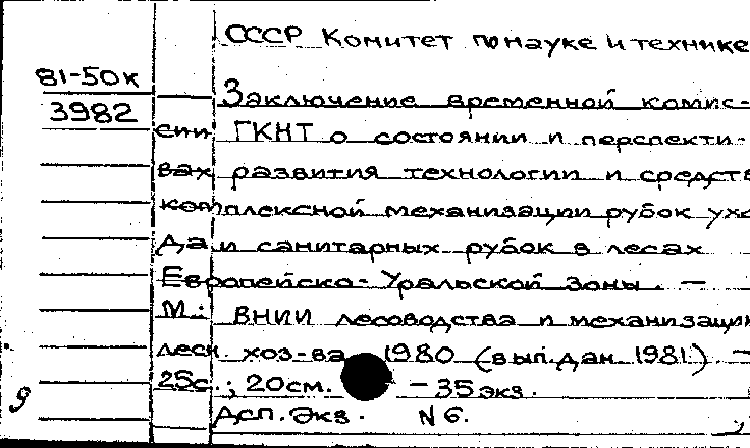 СССР Комитет по науке и технике
81-50к
3982
Заключение временной комис-
сии ГКНТ о состоянии и перспекти-
вах развития технологии и средств
комплексной механизации рубок ухо
да и санитарных рубок в лесах
Европейско-Уральской зоны. —
М.: ВНИИ лесоводства и механизации
лесн. хоз-ва 1980 (вып. дан. 1981.) —
25с.; 20см. — 35 экз.
Дсп. Экз. N 6.